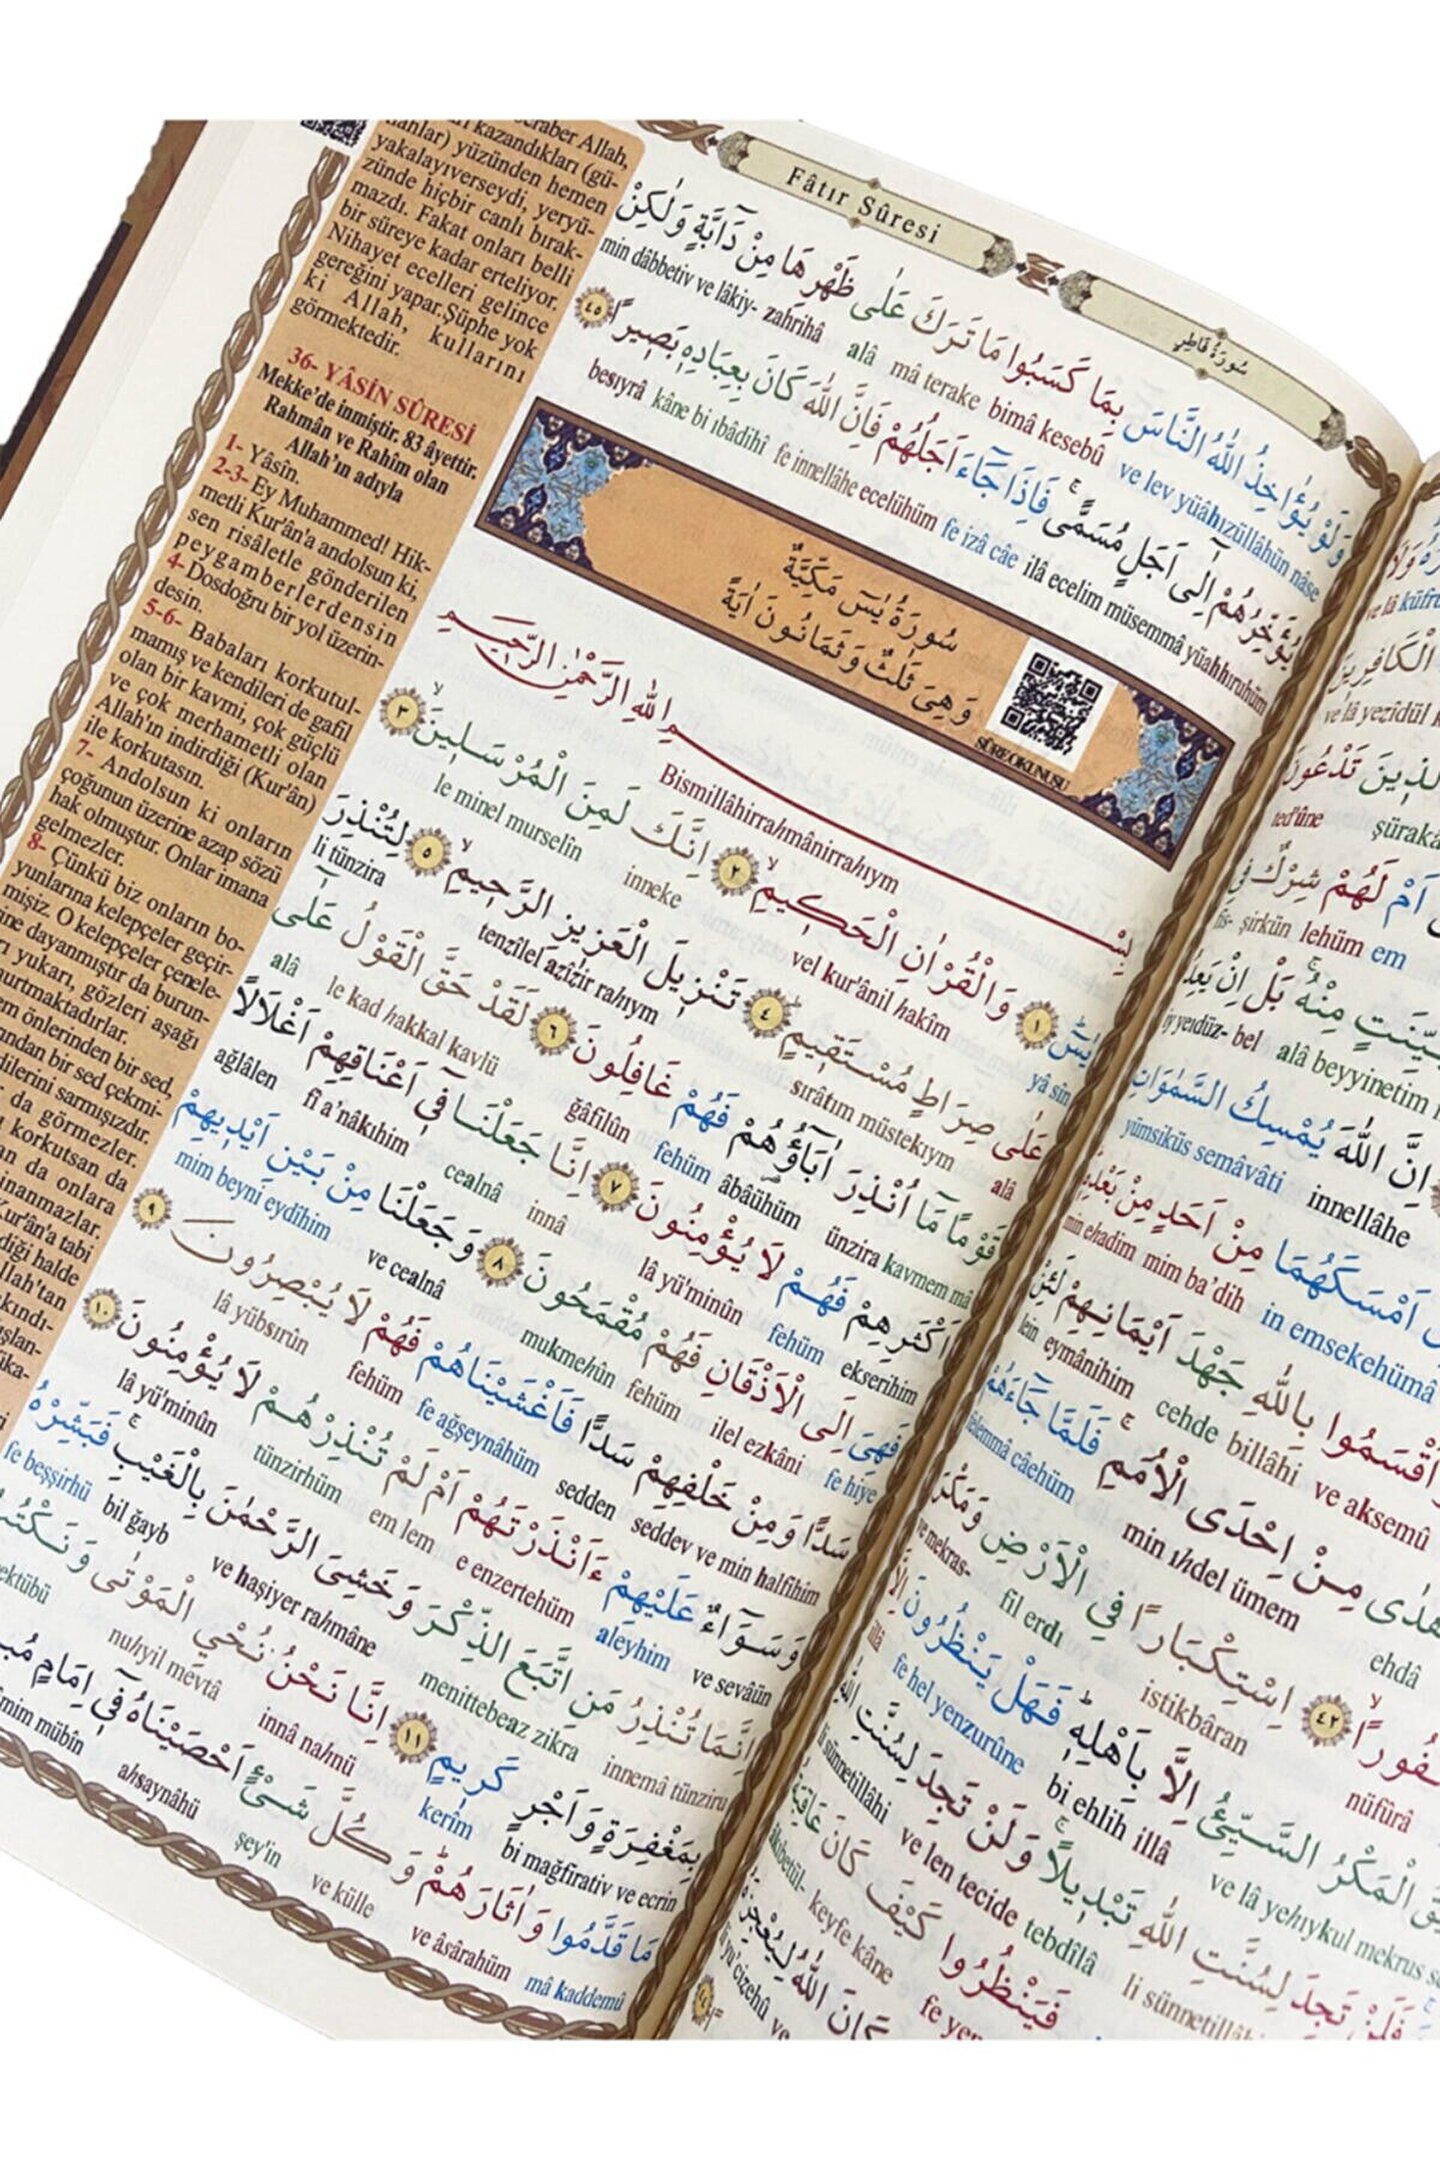 beraber Allah,
kazandıkları (gü-
nahlar) yüzünden hemen
yakalayıverseydi, yeryü-
zünde hiçbir canlı bırak-
mazdı. Fakat onları belli
bir süreye kadar erteliyor.
Nihayet ecelleri gelince
gereğini yapar.Şüphe yok
ki Allah, kullarını
görmektedir.
36- YÂSİN SÛRESİ
Mekke'de inmiştir. 83 âyettir.
Rahmân ve Rahîm olan
Allah'ın adıyla
1- Yâsîn.
2-3- Ey Muhammed! Hik-
metli Kur'ân'a andolsun ki,
sen risâletle gönderilen
peygamberlerdensin
4- Dosdoğru bir yol üzerin-
desin.
5-6- Babaları korkutul-
mamış ve kendileri de gafil
olan bir kavmi, çok güçlü
ve çok merhametli olan
Allah'ın indirdiği (Kur'ân)
ile korkutasın.
7- Andolsun ki onların
çoğunun üzerine azap sözü
hak olmuştur. Onlar imana
gelmezler.
8- Çünkü biz onların bo-
yunlarına kelepçeler geçir-
mişiz. O kelepçeler çenele-
ine dayanmıştır da burun-
yukarı, gözleri aşağı
urtmaktadırlar.
önlerinden bir sed,
ından bir sed çekmi-
dilerini sarmışızdır.
da görmezler.
korkutsan da
da onlara
inanmazlar.
Kur'ân'a tabi
diği halde
llah'tan
Fâtır Sûresi
سُورَةُ فَاطِرٍ
وَلَوْ يُؤَاخِذُ اللّٰهُ النَّاسَ بِمَا كَسَبُوا مَا تَرَكَ عَلٰى ظَهْرِهَا مِنْ دَٓابَّةٍ وَلٰكِنْ
min dâbbetiv ve lâkiy- zahrihâ alâ mâ terake bimâ kesebû ve lev yüâhızüllâhün nâse
يُؤَخِّرُهُمْ اِلٰٓى اَجَلٍ مُسَمًّىۚ فَاِذَا جَٓاءَ اَجَلُهُمْ فَاِنَّ اللّٰهَ كَانَ بِعِبَادِه۪ بَص۪يرًا ٤٥
besıyrâ kâne bi ıbâdihî fe innellâhe ecelühüm fe izâ câe ilâ ecelim müsemmâ yüahhıruhüm
سُورَةُ يٰسٓ مَكِّيَّةٌ
وَهِىَ ثَلٰثٌ وَثَمَانُونَ اٰيَةً
SÛRE OKUNUŞU
بِسْمِ اللّٰهِ الرَّحْمٰنِ الرَّح۪يمِ
Bismillâhirrahmânirrahıym
يٰسٓ ١ وَالْقُرْاٰنِ الْحَك۪يمِۙ ٢ اِنَّكَ لَمِنَ الْمُرْسَل۪ينَۙ ٣
le minel murselîn inneke vel kur'ânil hakîm yâ sîn
عَلٰى صِرَاطٍ مُسْتَق۪يمٍ ٤ تَنْز۪يلَ الْعَز۪يزِ الرَّح۪يمِۙ ٥ لِتُنْذِرَ
li tünzira tenzîlel azîzir rahıym sırâtım müstekıym alâ
قَوْمًا مَٓا اُنْذِرَ اٰبَٓاؤُ۬هُمْ فَهُمْ غَافِلُونَ ٦ لَقَدْ حَقَّ الْقَوْلُ عَلٰٓى
alâ le kad hakkal kavlü ğâfilûn fehüm âbâühüm ünzira kavmem mâ
اَكْثَرِهِمْ فَهُمْ لَا يُؤْمِنُونَ ٧ اِنَّا جَعَلْنَا ف۪ٓى اَعْنَاقِهِمْ اَغْلَالًا
ağlâlen fî a'nâkıhim cealnâ innâ lâ yü'minûn fehüm ekserihim
فَهِىَ اِلَى الْاَذْقَانِ فَهُمْ مُقْمَحُونَ ٨ وَجَعَلْنَا مِنْ بَيْنِ اَيْد۪يهِمْ
mim beyni eydîhim ve cealnâ mukmehûn fehüm ilel ezkâni fe hiye
سَدًّا وَمِنْ خَلْفِهِمْ سَدًّا فَاَغْشَيْنَاهُمْ فَهُمْ لَا يُبْصِرُونَ ٩
lâ yübsırûn fehüm fe ağşeynâhüm sedden seddev ve min halfihim
وَسَوَٓاءٌ عَلَيْهِمْ ءَاَنْذَرْتَهُمْ اَمْ لَمْ تُنْذِرْهُمْ لَا يُؤْمِنُونَ ١٠
lâ yü'minûn tünzirhüm em lem e enzertehüm aleyhim ve sevâün
اِنَّمَا تُنْذِرُ مَنِ اتَّبَعَ الذِّكْرَ وَخَشِىَ الرَّحْمٰنَ بِالْغَيْبِۚ فَبَشِّرْهُ
fe beşşirhü bil ğayb ve haşiyer rahmâne menittebeaz zikra innemâ tünziru
بِمَغْفِرَةٍ وَاَجْرٍ كَر۪يمٍ ١١ اِنَّا نَحْنُ نُحْيِي الْمَوْتٰى وَنَكْتُبُ
ektübü nuhyil mevtâ innâ nahnü kerîm bi mağfirativ ve ecrin
مَا قَدَّمُوا وَاٰثَارَهُمْۜ وَكُلَّ شَىْءٍ اَحْصَيْنَاهُ ف۪ٓى اِمَامٍ
imim mübîn ahsaynâhü şey'in ve külle ve âsârahüm mâ kaddemû
ve lâ küfru
الْكَافِر۪ينَ
ve lâ yezîdül
الَّذ۪ينَ تَدْعُونَ
ted'ûne şürakâ
اَمْ لَهُمْ شِرْكٌ فِي
fis- şirkün lehüm em
بَيِّنَتٍ مِنْهُۚ بَلْ اِنْ يَعِدُ
iy yeıdüz- bel alâ beyyinetim
اِنَّ اللّٰهَ يُمْسِكُ السَّمٰوَاتِ
yümsiküs semâvâti innellâhe
اَمْسَكَهُمَا مِنْ اَحَدٍ مِنْ بَعْدِه۪
min ehadim mim ba'dih in emsekehümâ
اَقْسَمُوا بِاللّٰهِ جَهْدَ اَيْمَانِهِمْ لَئِنْ
lein eymânihim cehde billâhi ve aksemû
اَهْدٰى مِنْ اِحْدَى الْاُمَمِۚ فَلَمَّا جَٓاءَهُمْ
felemmâ câehüm min ıhdel ümem ehdâ
نُفُورًاۙ ٤٢ اِسْتِكْبَارًا فِي الْاَرْضِ وَمَكْرَ
ve mekras- fil erdı istikbâran nüfûrâ
الْمَكْرُ السَّيِّئُ اِلَّا بِاَهْلِه۪ۜ فَهَلْ يَنْظُرُونَ اِلَّا
illâ fe hel yenzurûne bi ehlih illâ ve lâ yehıykul mekrus
فَلَنْ تَجِدَ لِسُنَّتِ اللّٰهِ تَبْد۪يلًاۚ وَلَنْ تَجِدَ لِسُنَّتِ اللّٰهِ
li sünnetillâhi ve len tecide tebdîlâ li sünnetillâhi
فَيَنْظُرُوا كَيْفَ كَانَ عَاقِبَةُ
âkıbetül- keyfe kâne fe yen
كَانَ اللّٰهُ لِيُعْجِزَهُ
li yu'cizehû ve